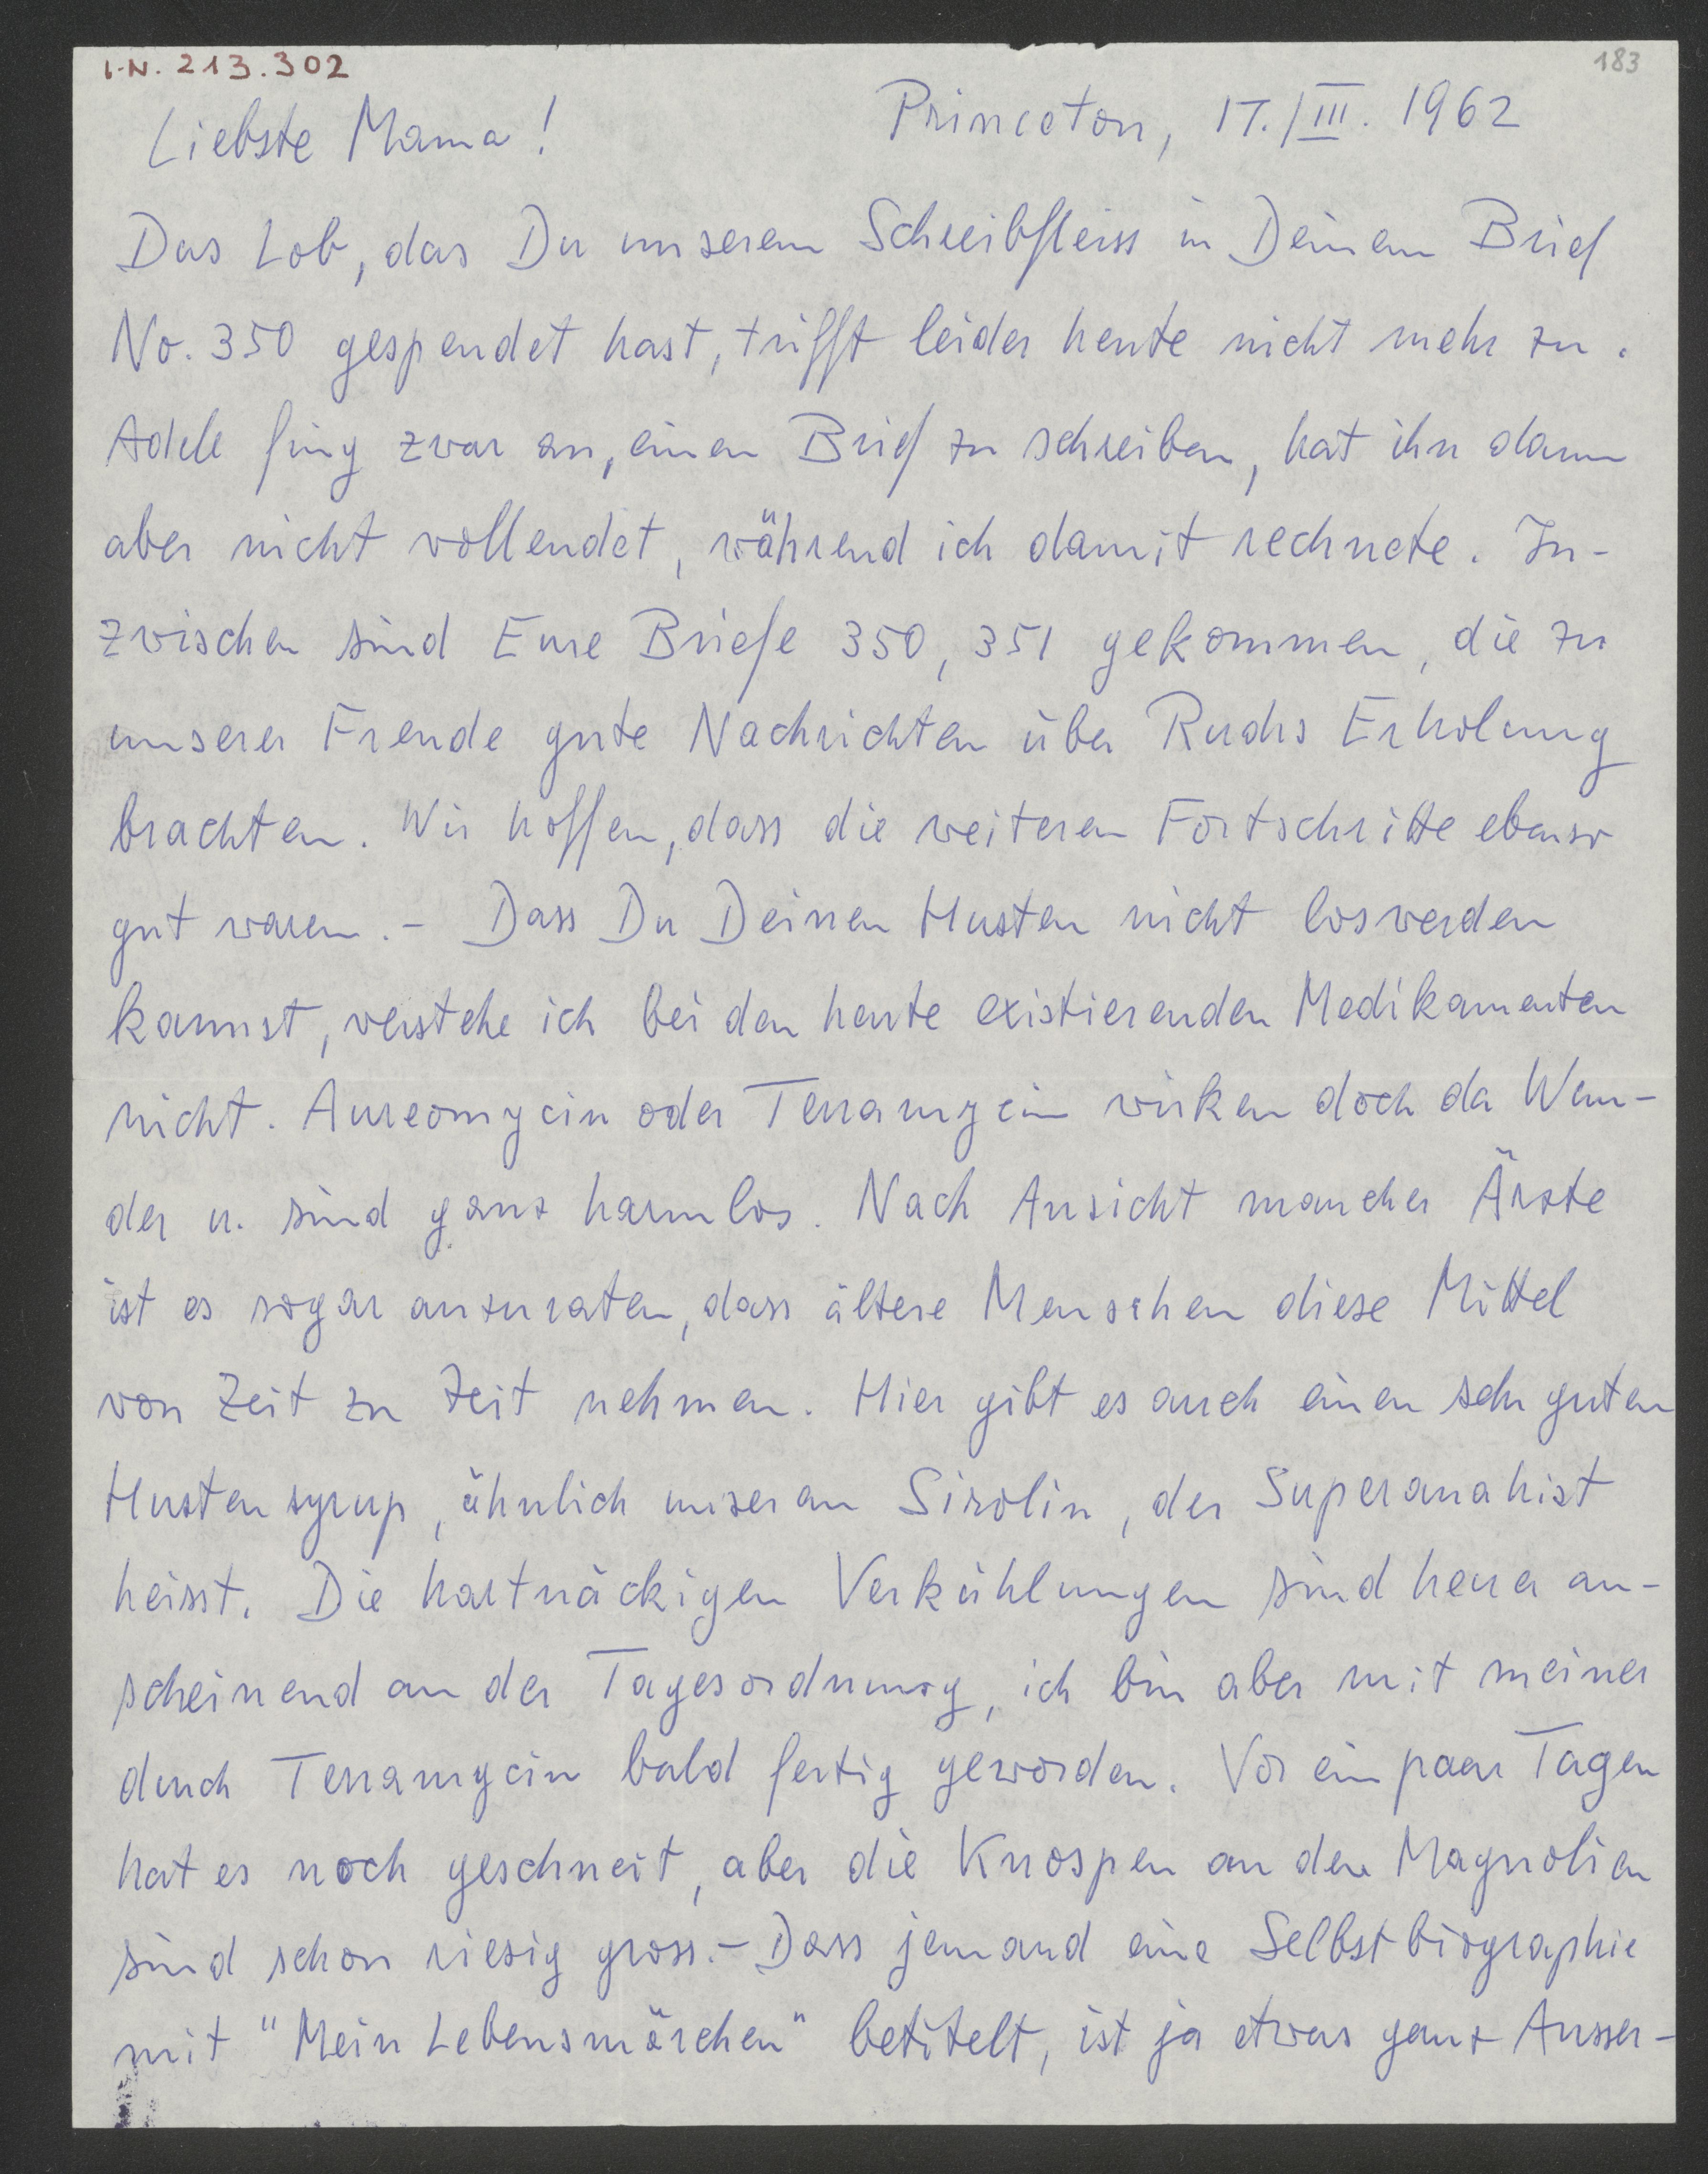 I.N. 213.302
183
Liebste Mama! Princeton, 17./III. 1962
Das Lob, das Du unserem Schreibfleiss in Deinem Brief
No. 350 gespendet hast, trifft leider heute nicht mehr zu.
Adele fing zwar an, einen Brief zu schreiben, hat ihn dann
aber nicht vollendet, während ich damit rechnete. In-
zwischen sind Eure Briefe 350, 351 gekommen, die zu
unserer Freude gute Nachrichten über Rudis Erholung
brachten. Wir hoffen, dass die weiteren Fortschritte ebenso
gut waren. - Dass Du Deinen Husten nicht loswerden
kannst, verstehe ich bei den heute existierenden Medikamenten
nicht. Aureomycin oder Terramycin wirken doch da Wun-
der u. sind ganz harmlos. Nach Ansicht mancher Ärzte
ist es sogar anzuraten, dass ältere Menschen diese Mittel
von Zeit zu Zeit nehmen. Hier gibt es auch einen sehr guten
Hustensyrup, ähnlich unserem Sirolin, der Superanahist
heisst. Die hartnäckigen Verkühlungen sind heuer an-
scheinend an der Tagesordnung, ich bin aber mit meiner
durch Terramycin bald fertig geworden. Vor ein paar Tagen
hat es noch geschneit, aber die Knospen an den Magnolien
sind schon riesig gross. - Dass jemand eine Selbstbiographie
mit "Mein Lebensmärchen" betitelt, ist ja etwas ganz Ausser-